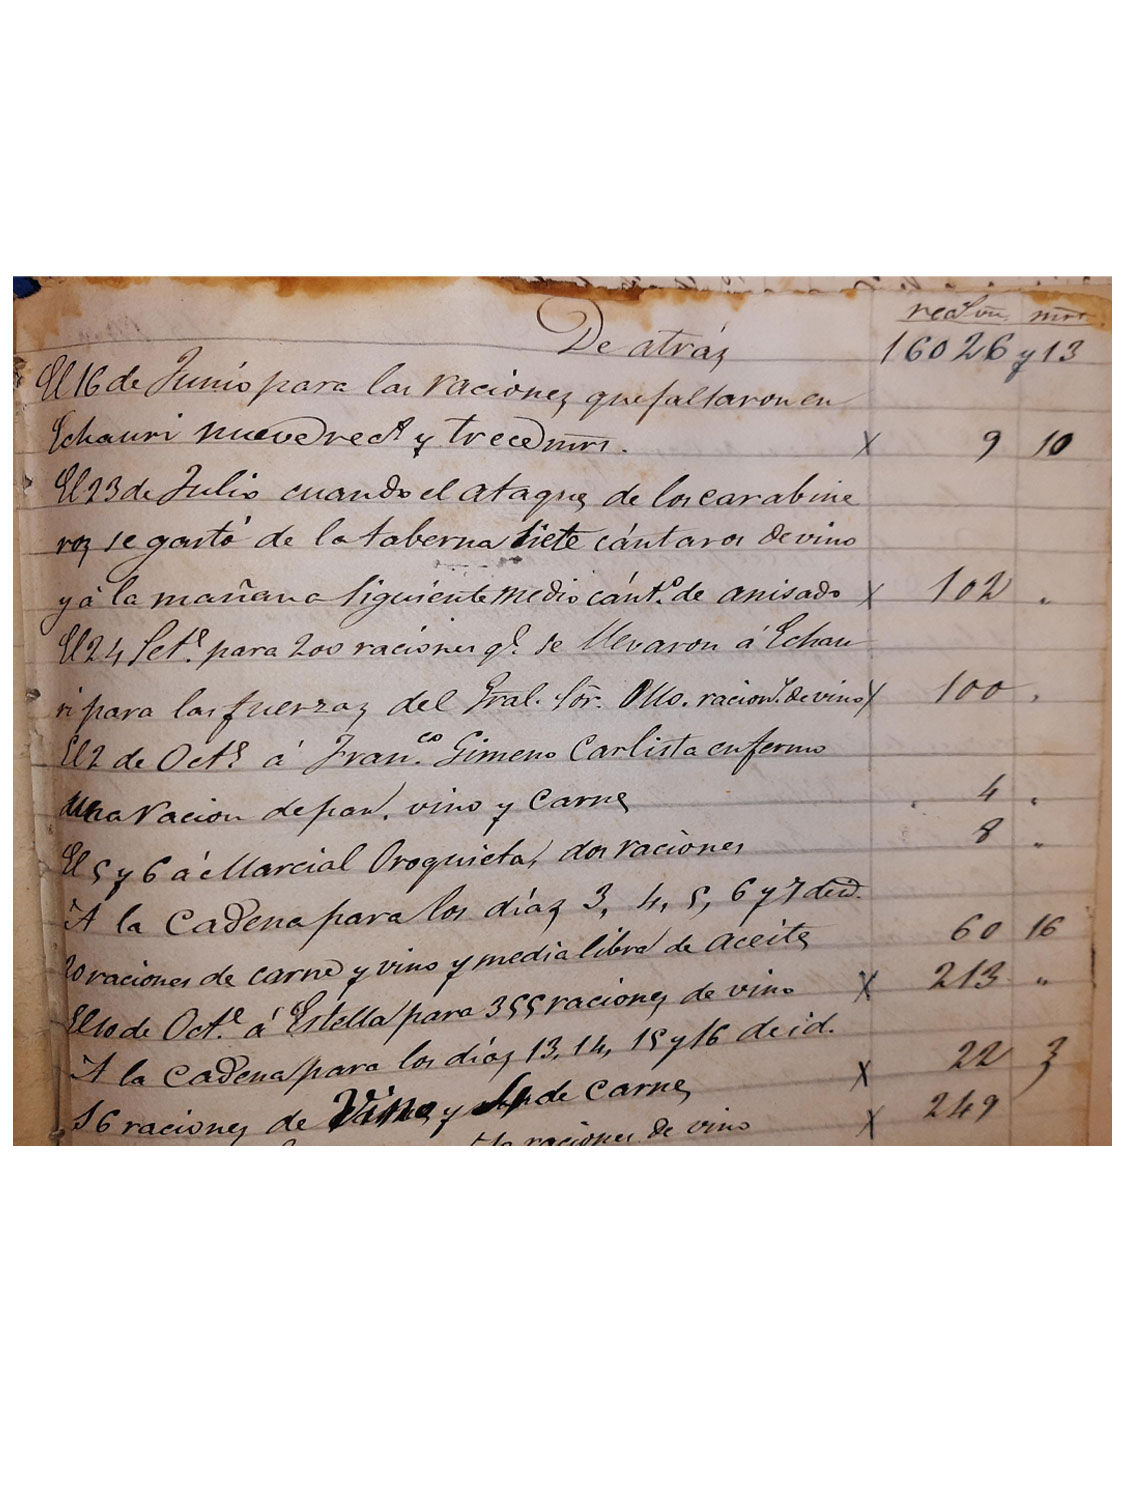 rec.s vn. mrs.
De atráz 16026 y 13
El 16 de Junio para las racionez que faltaron en
Echauri nueve rec.s y trece mrs. X 9 10
El 23 de Julio cuando el ataque de los carabine
roz se gastó de la taberna siete cántaros de vino
y á la mañana siguiente medio cánt.o de anisado X 102 "
El 24 Set.e para 200 raciones q.e se llevaron á Echau
ri para las fuerzaz del Gral. Sõr. Ollo. racion.s de vino X 100 "
El 2 de Oct.e á Fran.co Gimeno Carlista enfermo
una racion de pan, vino y carne 4 "
El 5 y 6 á Marcial Oroquieta, dos raciones 8 "
A la Cadena para los díaz 3, 4, 5, 6 y 7 de id.
20 raciones de carne y vino y media libra de aceite 60 16
El 10 de Oct.e á Estella para 355 racionez de vino X 213 "
A la Cadena para los díaz 13, 14, 15 y 16 de id.
16 racionez de Vino y de carne X 22 3
raciones de vino X 249